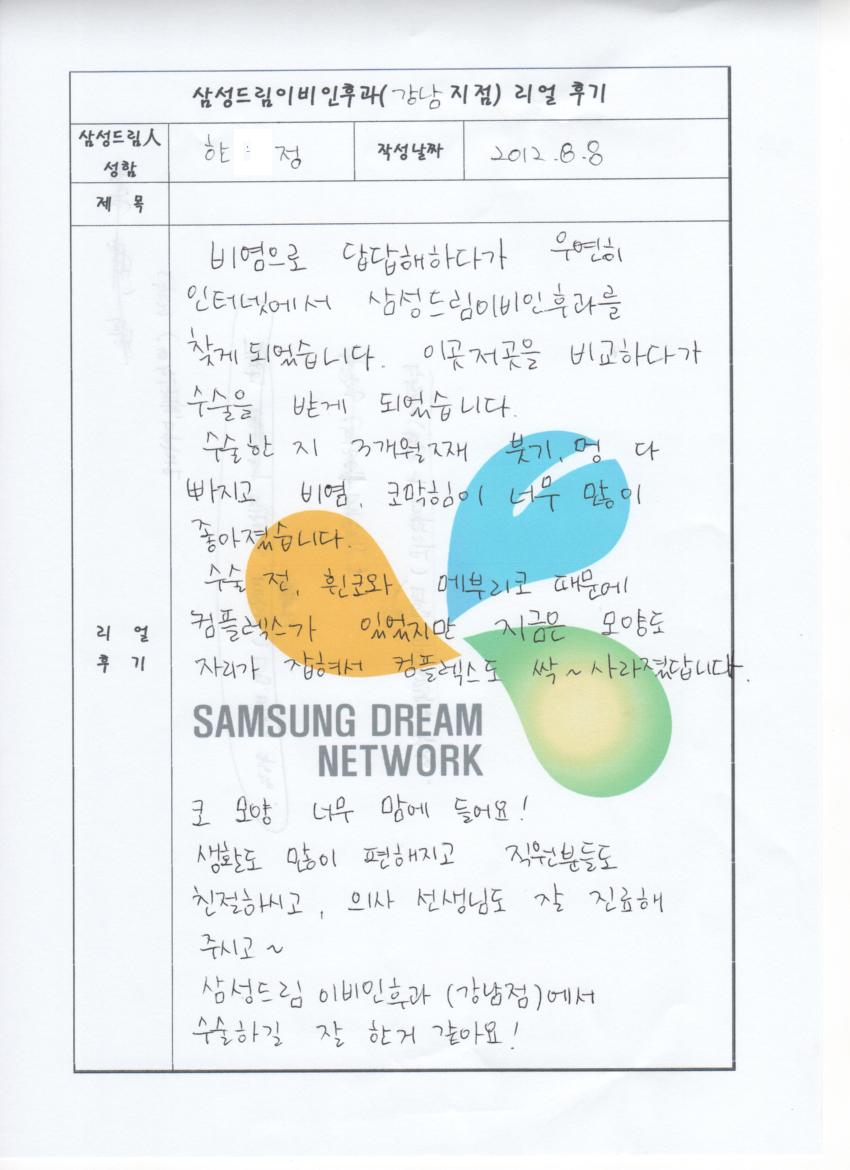 삼성드림이비인후과(강남 지점) 리얼 후기
삼성드림人 성함
한 정
작성날짜
2012.8.8
제 목
리 얼
후 기
비염으로 답답해하다가 우연히
인터넷에서 삼성드림이비인후과를
찾게 되었습니다. 이곳저곳을 비교하다가
수술을 받게 되었습니다.
수술한 지 3개월째 붓기, 멍 다
빠지고 비염, 코막힘이 너무 많이
좋아졌습니다.
수술 전, 휜코와 메부리코 때문에
컴플렉스가 있었지만 지금은 모양도
자리가 잡혀서 컴플렉스도 싹~ 사라졌답니다.
SAMSUNG DREAM
NETWORK
코 모양 너무 맘에 들어요!
생활도 많이 편해지고 직원분들도
친절하시고, 의사 선생님도 잘 진료해
주시고~
삼성드림 이비인후과 (강남점)에서
수술하길 잘 한거 같아요!